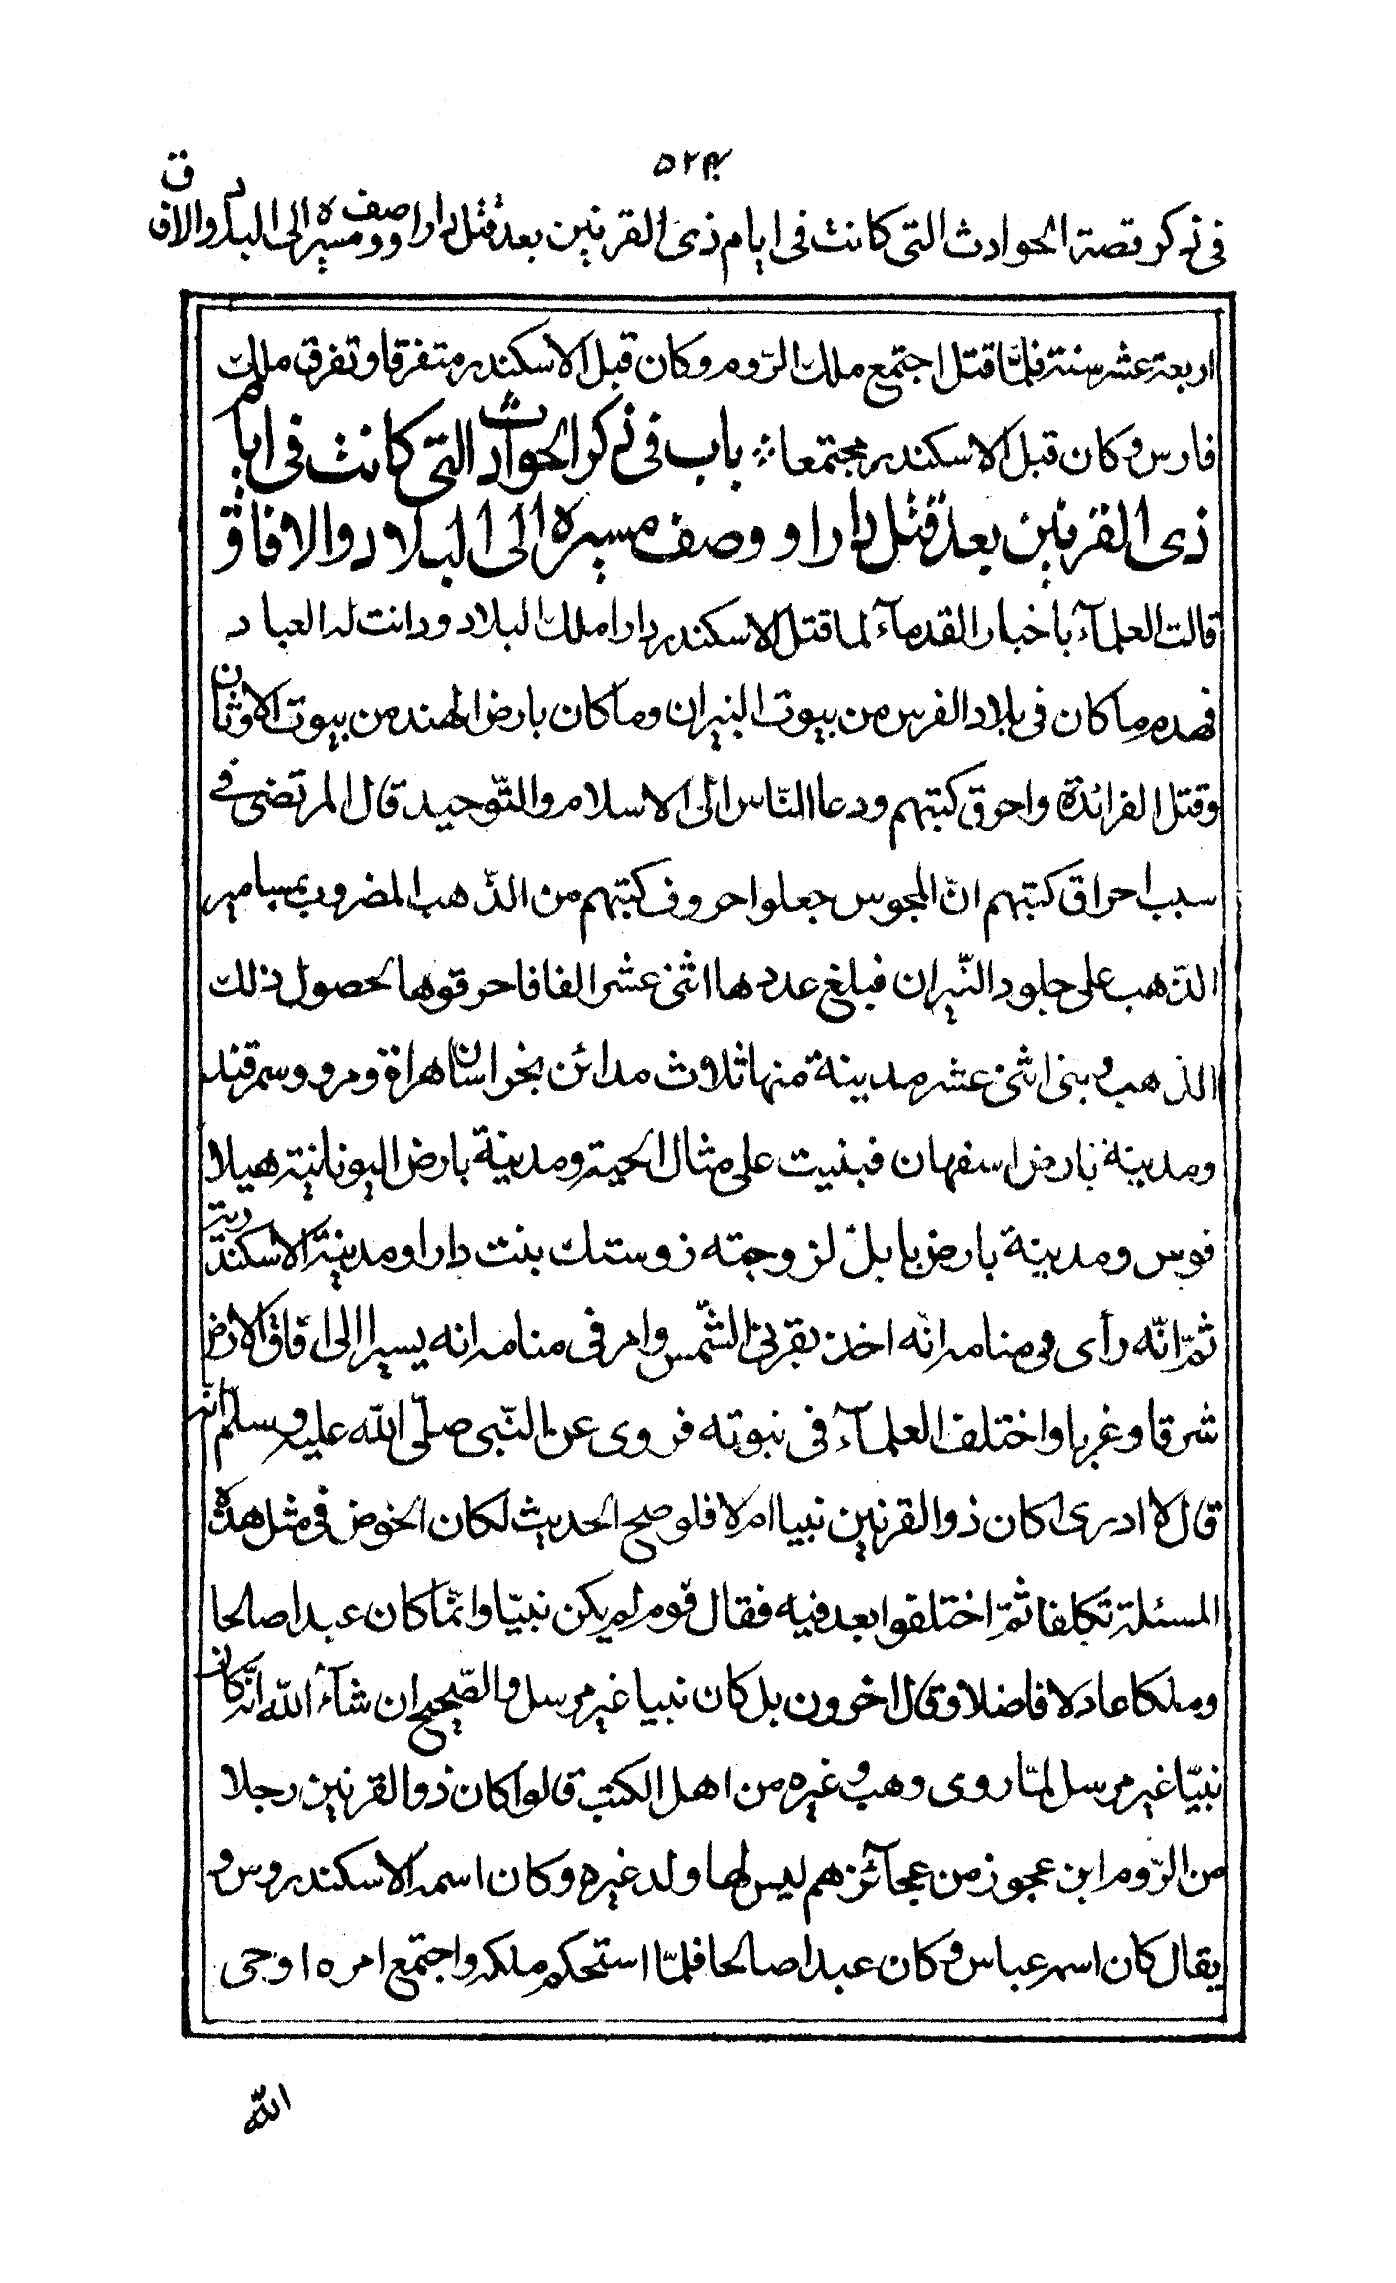 ٥٢٤
فى ذكر قصة الحوادث التى كانت فى ايام ذى القرنين بعد قتل دارا ووصف مسيره الى البلاد والافاق
اربعة عشر سنة فلمّا قتل اجتمع ملك الرّوم وكان قبل الاسكندر متفرقا وتفرق ملك
فارس وكان قبل الاسكندر مجتمعا ؞ باب فى ذكر الحوادث التى كانت فى ايام
ذى القرنين بعد قتل دارا و وصف مسيره الى البلاد والافاق
قالت العلمآء باخبار القدمآء لما قتل الاسكندر دارا ملك البلاد ودانت له العباد
فهدم ما كان فى بلاد الفرس من بيوت النيران وما كان بارض الهند من بيوت الاوثان
وقتل الفرائدة واحرق كتبهم ودعا الناس الى الاسلام والتّوحيد قال المرتضى فى
سبب احراق كتبهم انّ المجوس جعلوا حروف كتبهم من الذّهب المضروب بمسامير
الذّهب على جلود النّيران فبلغ عددها اثنى عشر الفا فاحرقوها لحصول ذلك
الذهب وبنى اثنى عشر مدينة منها ثلاث مدائن بخراسان هراة ومرو وسمرقند
ومدينة بارض اسفهان فبنيت على مثال الحية ومدينة بارض اليونانية هيلا
فوس ومدينة بارض بابل لزوجته زوستك بنت دارا ومدينة الاسكندرية
ثمّ انّه رأى فى منامه انه اخذ بقرنى الشّمس وامر فى منامه انه يسير الى افاق الارض
شرقا وغربا واختلف العلمآء فى نبوته فروى عن النّبى صلّى الله عليه وسلّم انّه
قال لا ادرى اكان ذو القرنين نبيا ام لا فلو صح الحديث لكان الخوض فى مثل هذه
المسئلة تكلفا ثمّ اختلفوا بعد فيه فقال قوم لم يكن نبيّا وانّما كان عبدا صالحا
وملكا عادلا فاضلا وقال اخرون بل كان نبيا غير مرسل والصّحيح ان شآء الله انّه كان
نبيّا غير مرسل لمّا روى وهب وغيره من اهل الكتب قالوا كان ذو القرنين رجلا
من الرّوم ابن عجوز من عجآئزهم ليس لها ولد غيره وكان اسمه الاسكندروس و
يقال كان اسمه عباس وكان عبدا صالحا فلمّا استحكم ملكه واجتمع امره اوحى
الله